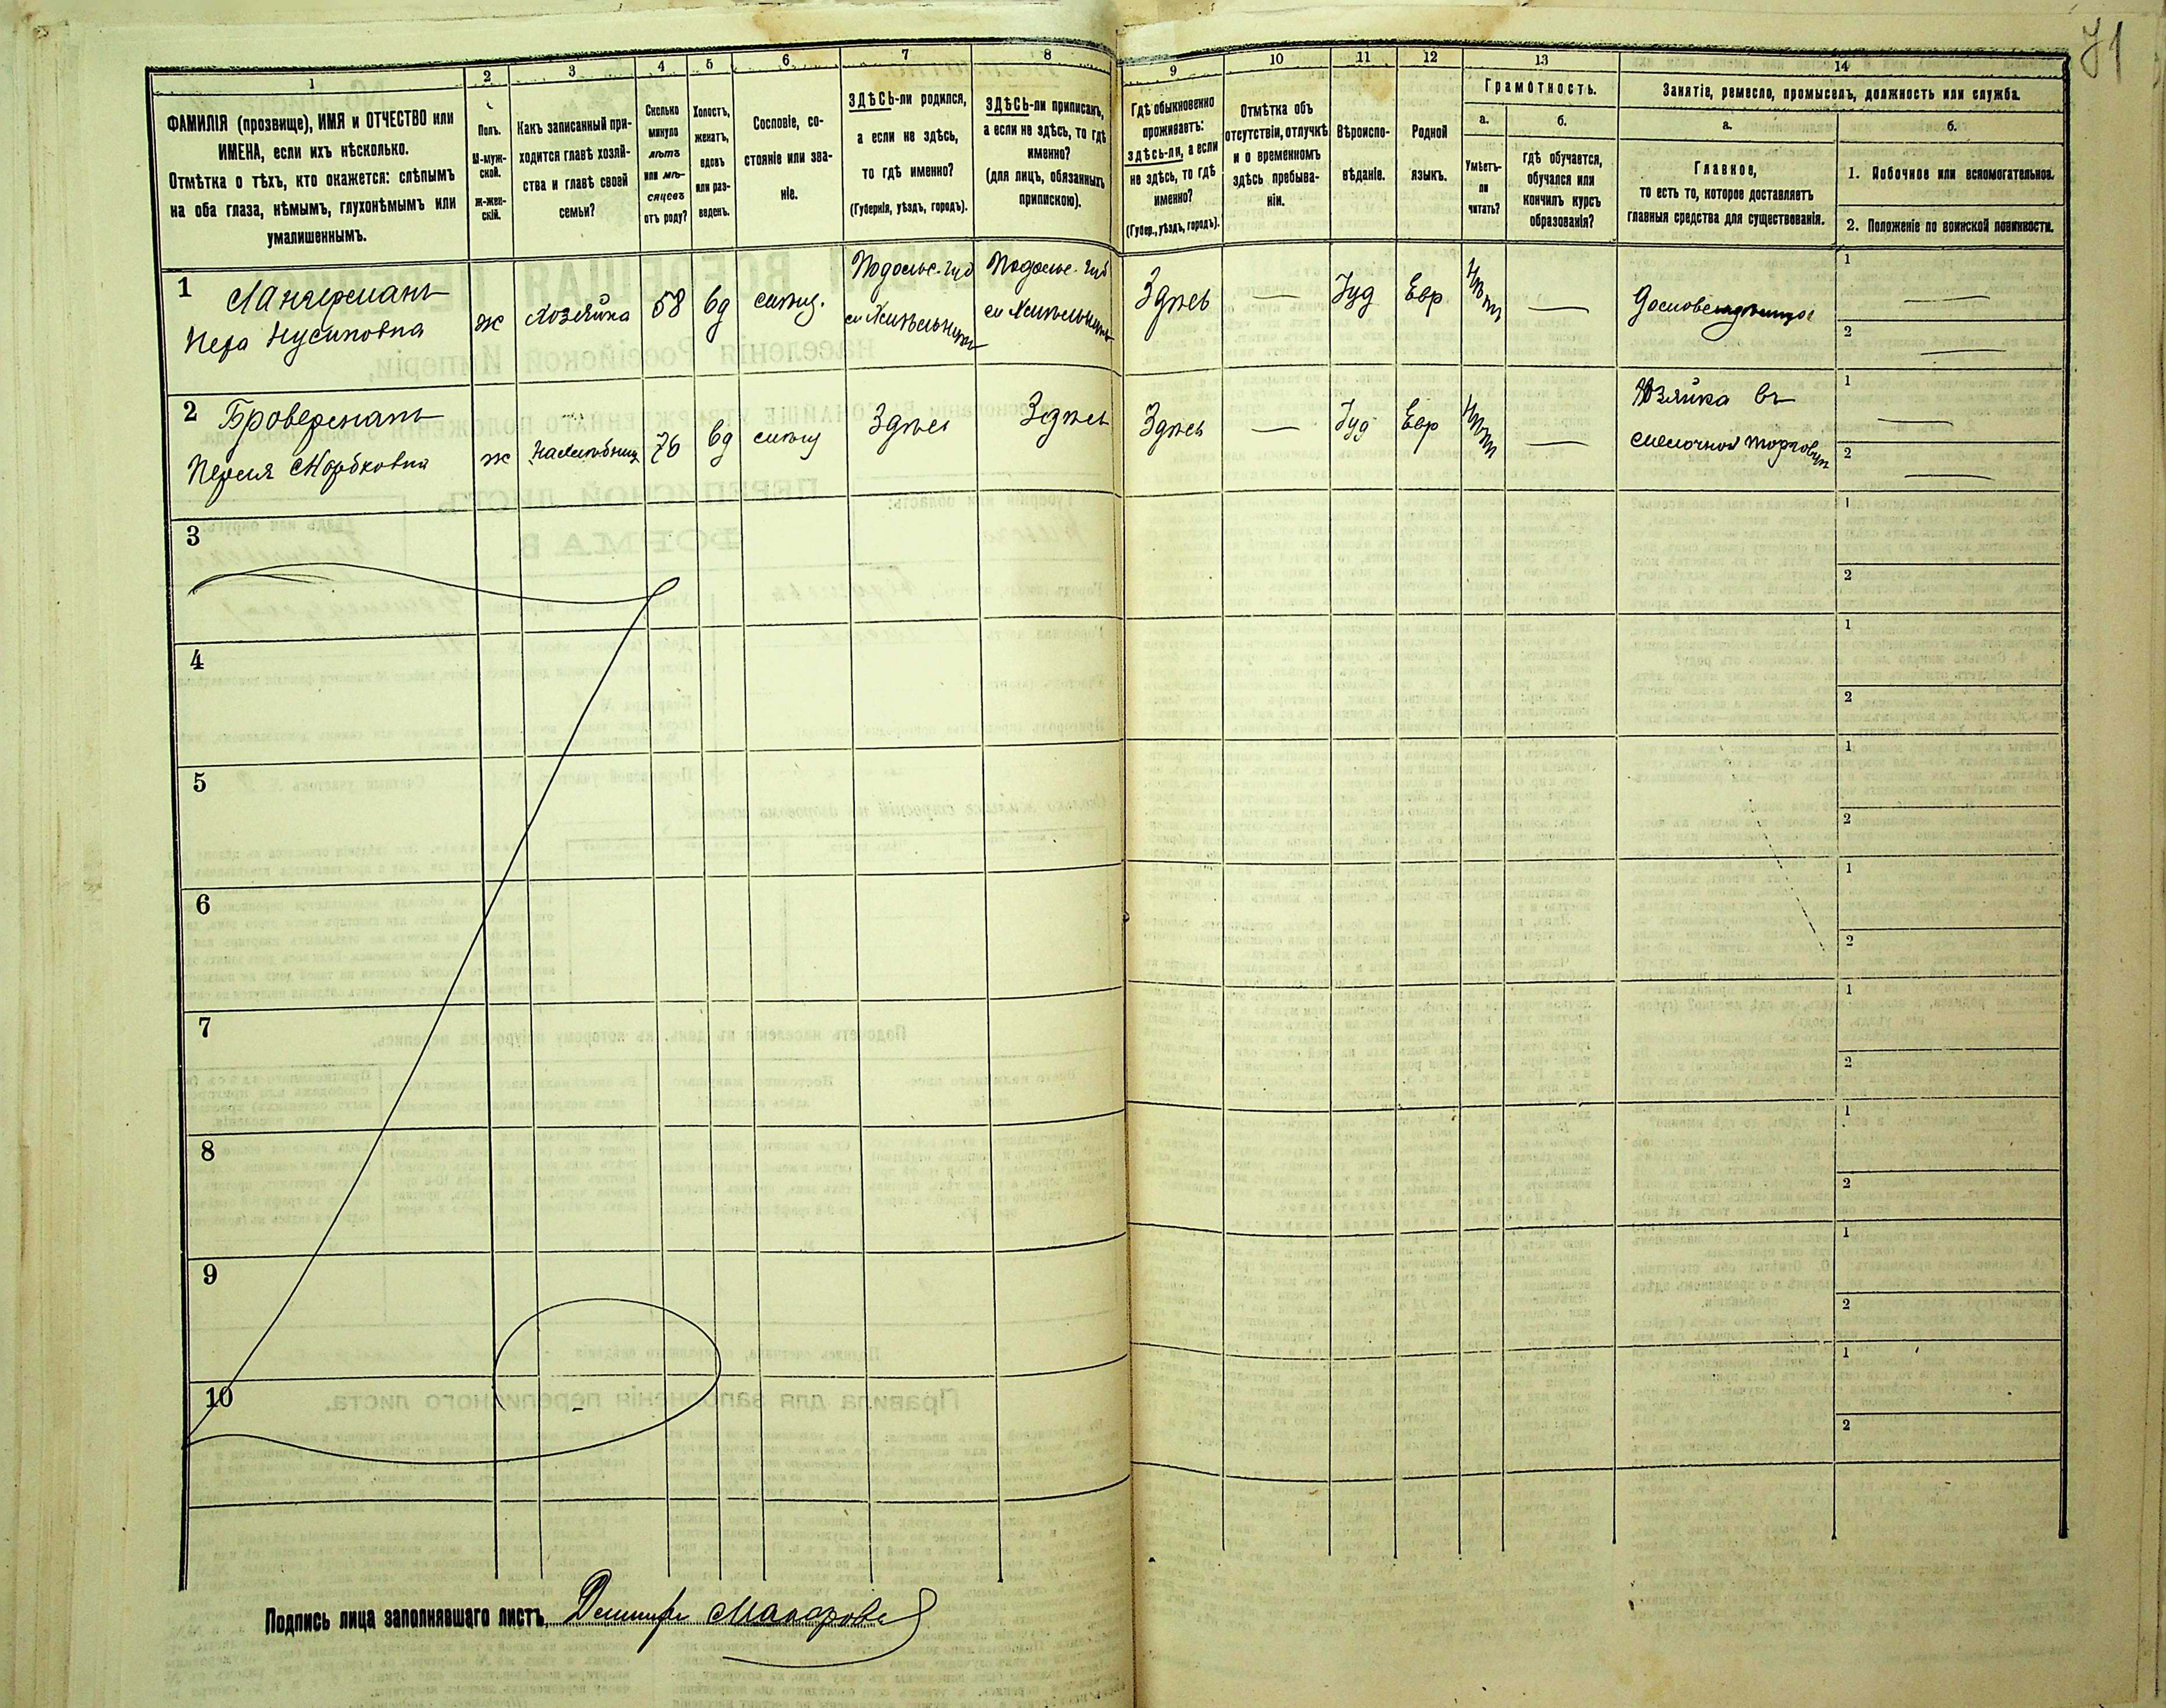 71
1 2 3 4 5 6 7 8 9 10 11 12 13 14
ФАМИЛІЯ (прозвище), ИМЯ и ОТЧЕСТВО или
ИМЕНА, если ихъ нѣсколько.
Отмѣтка о тѣхъ, кто окажется: слѣпымъ
на оба глаза, нѣмымъ, глухонѣмымъ или
умалишеннымъ.
Полъ.
М-муж-
ской.
ж-жен-
скій.
Какъ записанный при-
ходится главѣ хозяй-
ства и главѣ своей
семьи?
Сколько
минуло
лѣтъ
или мѣ-
сяцевъ
отъ роду?
Холостъ,
женатъ,
вдовъ
или раз-
веденъ.
Сословіе, со-
стояніе или зва-
ніе.
ЗДѢСЬ-ли родился,
а если не здѣсь,
то гдѣ именно?
(Губернія, уѣздъ, городъ).
ЗДѢСЬ-ли приписанъ,
а если не здѣсь, то гдѣ
именно?
(для лицъ, обязанныхъ
припискою).
Гдѣ обыкновенно
проживаетъ:
здѣсь-ли, а если
не здѣсь, то гдѣ
именно?
(Губер., уѣздъ, городъ).
Отмѣтка объ
отсутствіи, отлучкѣ
и о временномъ
здѣсь пребыва-
ніи.
Вѣроиспо-
вѣданіе.
Родной
языкъ.
Грамотность.
а.
Умѣетъ-
ли
читать?
б.
гдѣ обучается,
обучался или
кончилъ курсъ
образованія?
Занятіе, ремесло, промыселъ, должность или служба.
а.
Главное,
то есть то, которое доставляетъ
главныя средства для существованія.
б.
1. Побочное или вспомогательное.
2. Положеніе по воинской повинности.
1
Нусиновна
ж
Хозяйка
58
вд
Подольс. губ
Подольс. губ
Здѣсь
—
Іуд
Евр
Нѣтъ
—
1 —
2 —
2 Броверманъ
ж
76
вд
Здѣсь
Здѣсь
Здѣсь
—
Іуд
Евр
Нѣтъ
—
Хозяйка въ
мелочной торговли
1 —
2 —
3
1
2
4
1
2
5
1
2
6
1
2
7
1
2
8
1
2
9
1
2
10
1
2
Подпись лица заполнявшаго листъ